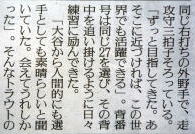 同じ右打ちの外野手で、走
攻守三拍子そろっている。
「ずっと目指してきた。あ
そこに近づければ、この世
界でも活躍できる」。背番
号は同じ27を選び、その背
中を追い掛けるように日々
練習に励んできた。
「大谷から人間的にも選
手としても素晴らしいと聞
いていた。会えてうれしか
った」。そんなトラウトの